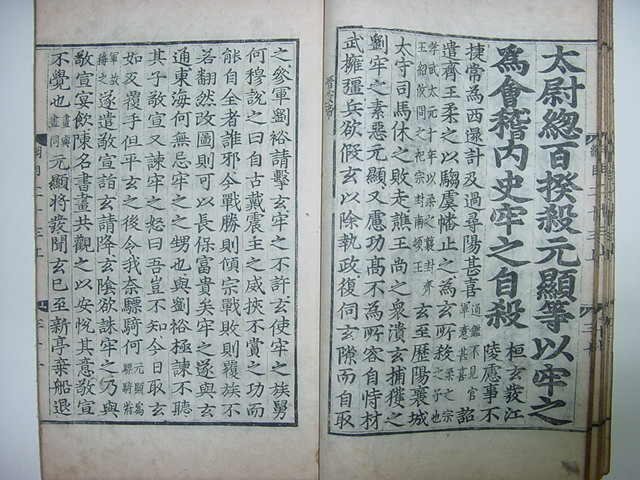 太尉總百揆殺元顯等以牢之
為會稽內史牢之自殺 桓玄發江
陵慮事不
捷常為西還計及過尋陽甚喜 通鑑不見官
軍意甚喜 詔
遣齊王柔之以騶虞幡止之為玄所殺 柔之宗
之子也
孝武太元十年以柔之襲封齊
王紹攸冏之祀宗封南頓王 玄至歷陽襄城
太守司馬休之敗走譙王尚之衆潰玄捕獲之
劉牢之素惡元顯又慮功高不為所容自恃材
武擁彊兵欲假玄以除執政復伺玄隙而自取
之叅軍劉裕請擊玄牢之不許玄使牢之族舅
何穆說之曰自古戴震主之威挾不賞之功而
能自全者誰邪今戰勝則傾宗戰敗則覆族不
若翻然改圖則可以長保富貴矣牢之遂與玄
通東海何無忌牢之之甥也與劉裕極諫不聽
其子敬宣又諫牢之怒曰吾豈不知今日取玄
如反覆手但平玄之後令我奈驃騎何 元顯為
驃騎將
軍故
稱之 遂遣敬宣詣玄請降玄陰欲誅牢之乃與
敬宣宴飲陳名書畫共觀之以安悅其意敬宣
不覺也 元顯將發聞玄已至新亭棄船退